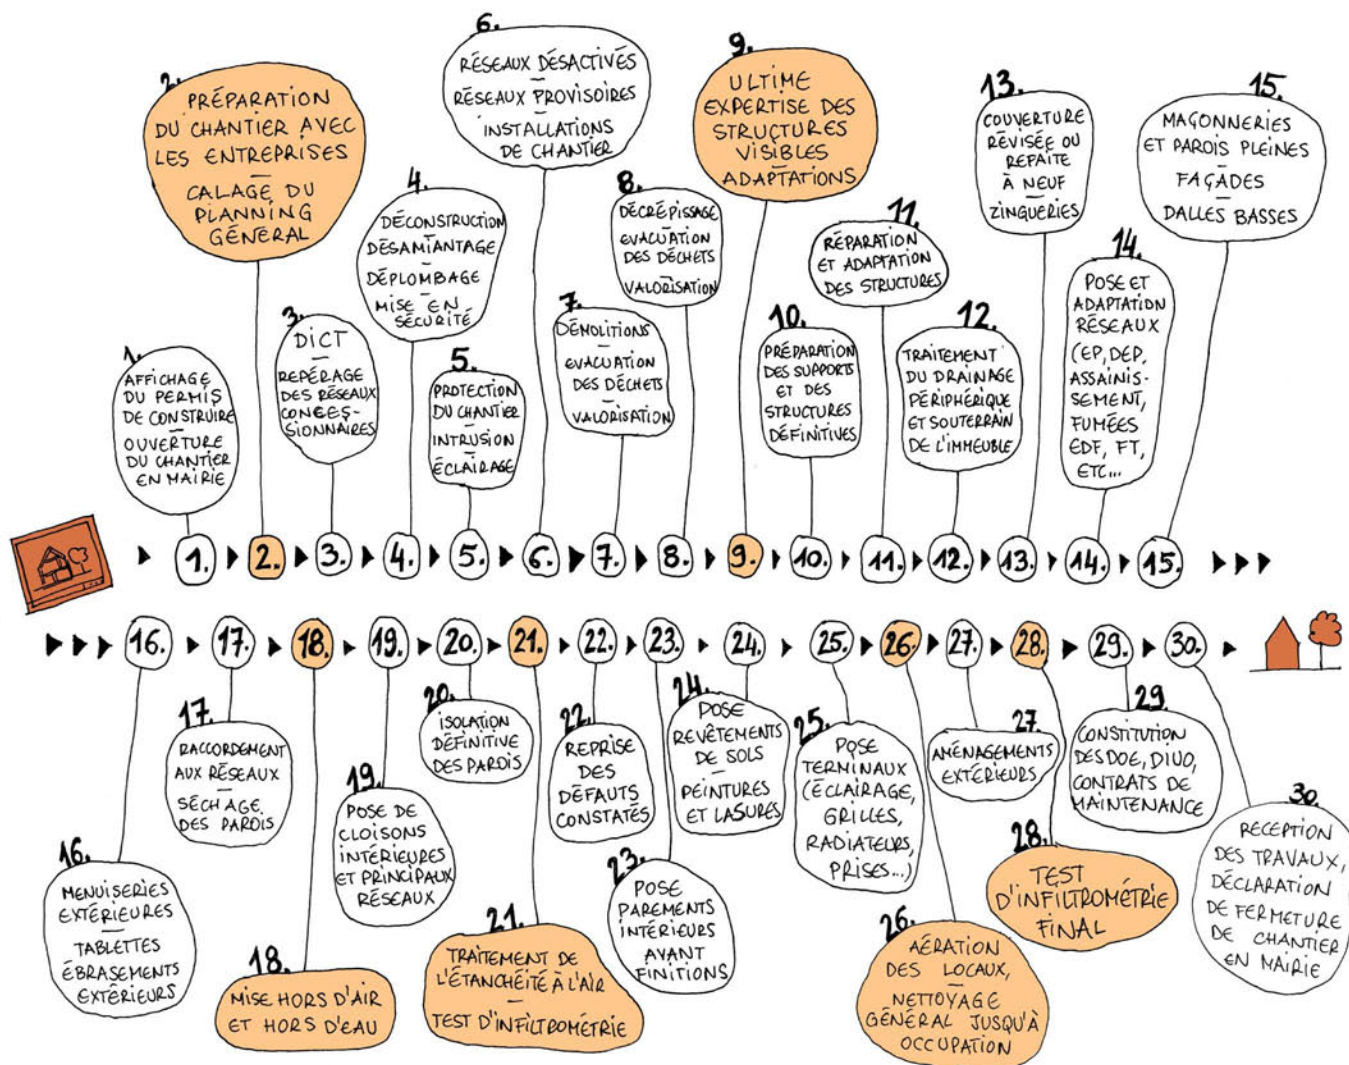 1.
AFFICHAGE
DU PERMIS
DE CONSTRUIRE
—
OUVERTURE
DU CHANTIER
EN MAIRIE
2.
PRÉPARATION
DU CHANTIER AVEC
LES ENTREPRISES
—
CALAGE DU
PLANNING
GÉNÉRAL
3.
DICT
—
REPÉRAGE
DES RÉSEAUX
CONCES-
SIONNAIRES
4.
DÉCONSTRUCTION
—
DÉSAMIANTAGE
—
DÉPLOMBAGE
—
MISE EN
SÉCURITÉ
5.
PROTECTION
DU CHANTIER
—
INTRUSION
—
ÉCLAIRAGE
6.
RÉSEAUX DÉSACTIVÉS
—
RÉSEAUX PROVISOIRES
—
INSTALLATIONS
DE CHANTIER
7.
DÉMOLITIONS
—
EVACUATION
DES DÉCHETS
—
VALORISATION
8.
DÉCRÉPISSAGE
—
EVACUATION
DES DÉCHETS
—
VALORISATION
9.
ULTIME
EXPERTISE DES
STRUCTURES
VISIBLES
—
ADAPTATIONS
10.
PRÉPARATION
DES SUPPORTS
ET DES
STRUCTURES
DÉFINITIVES
11.
RÉPARATION
ET ADAPTATION
DES STRUCTURES
12.
TRAITEMENT
DU DRAINAGE
PÉRIPHÉRIQUE
ET SOUTERRAIN
DE L'IMMEUBLE
13.
COUVERTURE
RÉVISÉE OU
REFAITE
À NEUF
—
ZINGUERIES
14.
POSE ET
ADAPTATION
RÉSEAUX
(EP, DEP,
ASSAINIS-
SEMENT,
FUMÉES
EDF, FT,
ETC...
15.
MAÇONNERIES
ET PAROIS PLEINES
—
FAÇADES
—
DALLES BASSES
1. 2. 3. 4. 5. 6. 7. 8. 9. 10. 11. 12. 13. 14. 15.
16. 17. 18. 19. 20. 21. 22. 23. 24. 25. 26. 27. 28. 29. 30.
16.
MENUISERIES
EXTÉRIEURES
—
TABLETTES
ÉBRASEMENTS
EXTÉRIEURS
17.
RACCORDEMENT
AUX RÉSEAUX
—
SÉCHAGE
DES PAROIS
18.
MISE HORS D'AIR
ET HORS D'EAU
19.
POSE DE
CLOISONS
INTÉRIEURES
ET PRINCIPAUX
RÉSEAUX
20.
ISOLATION
DÉFINITIVE
DES PAROIS
21.
TRAITEMENT DE
L'ÉTANCHÉITÉ À L'AIR
—
TEST D'INFILTROMÉTRIE
22.
REPRISE
DES
DÉFAUTS
CONSTATÉS
23.
POSE
PAREMENTS
INTÉRIEURS
AVANT
FINITIONS
24.
POSE
REVÊTEMENTS
DE SOLS
—
PEINTURES
ET LASURES
25.
POSE
TERMINAUX
(ÉCLAIRAGE,
GRILLES,
RADIATEURS,
PRISES...)
26.
AÉRATION
DES LOCAUX,
—
NETTOYAGE
GÉNÉRAL JUSQU'À
OCCUPATION
27.
AMÉNAGEMENTS
EXTÉRIEURS
28.
TEST
D'INFILTROMÉTRIE
FINAL
29.
CONSTITUTION
DES DOE, DIUO,
CONTRATS DE
MAINTENANCE
30.
RECEPTION
DES TRAVAUX,
DÉCLARATION
DE FERMETURE
DE CHANTIER
EN MAIRIE